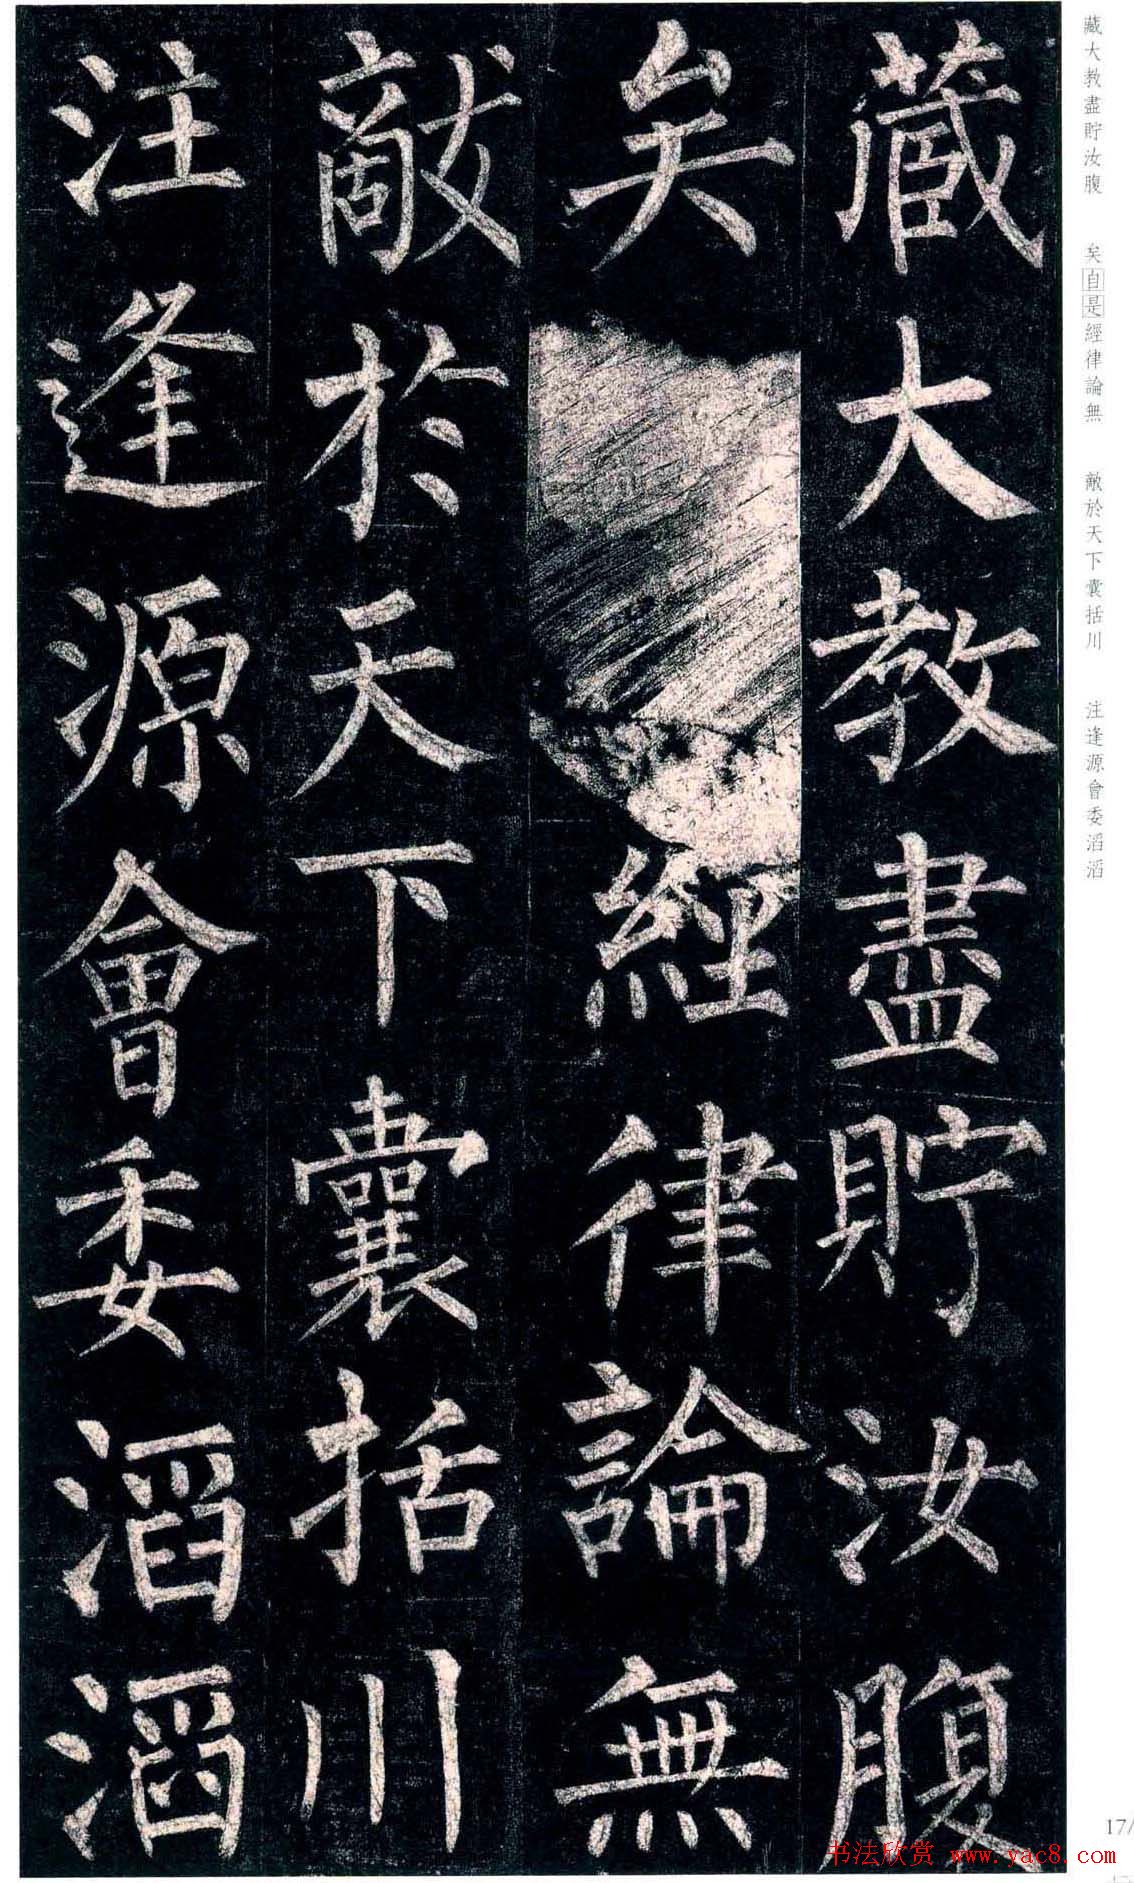 藏大教盡貯汝腹
矣
經律論無
敵於天下囊括川
注逢源會委滔滔
藏大教盡貯汝腹 矣自是經律論無 敵於天下囊括川 注逢源會委滔滔
17/
书法欣赏 www.yac8.com